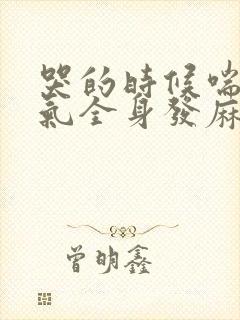 哭的時候喘
氣全身發麻
曾明鑫